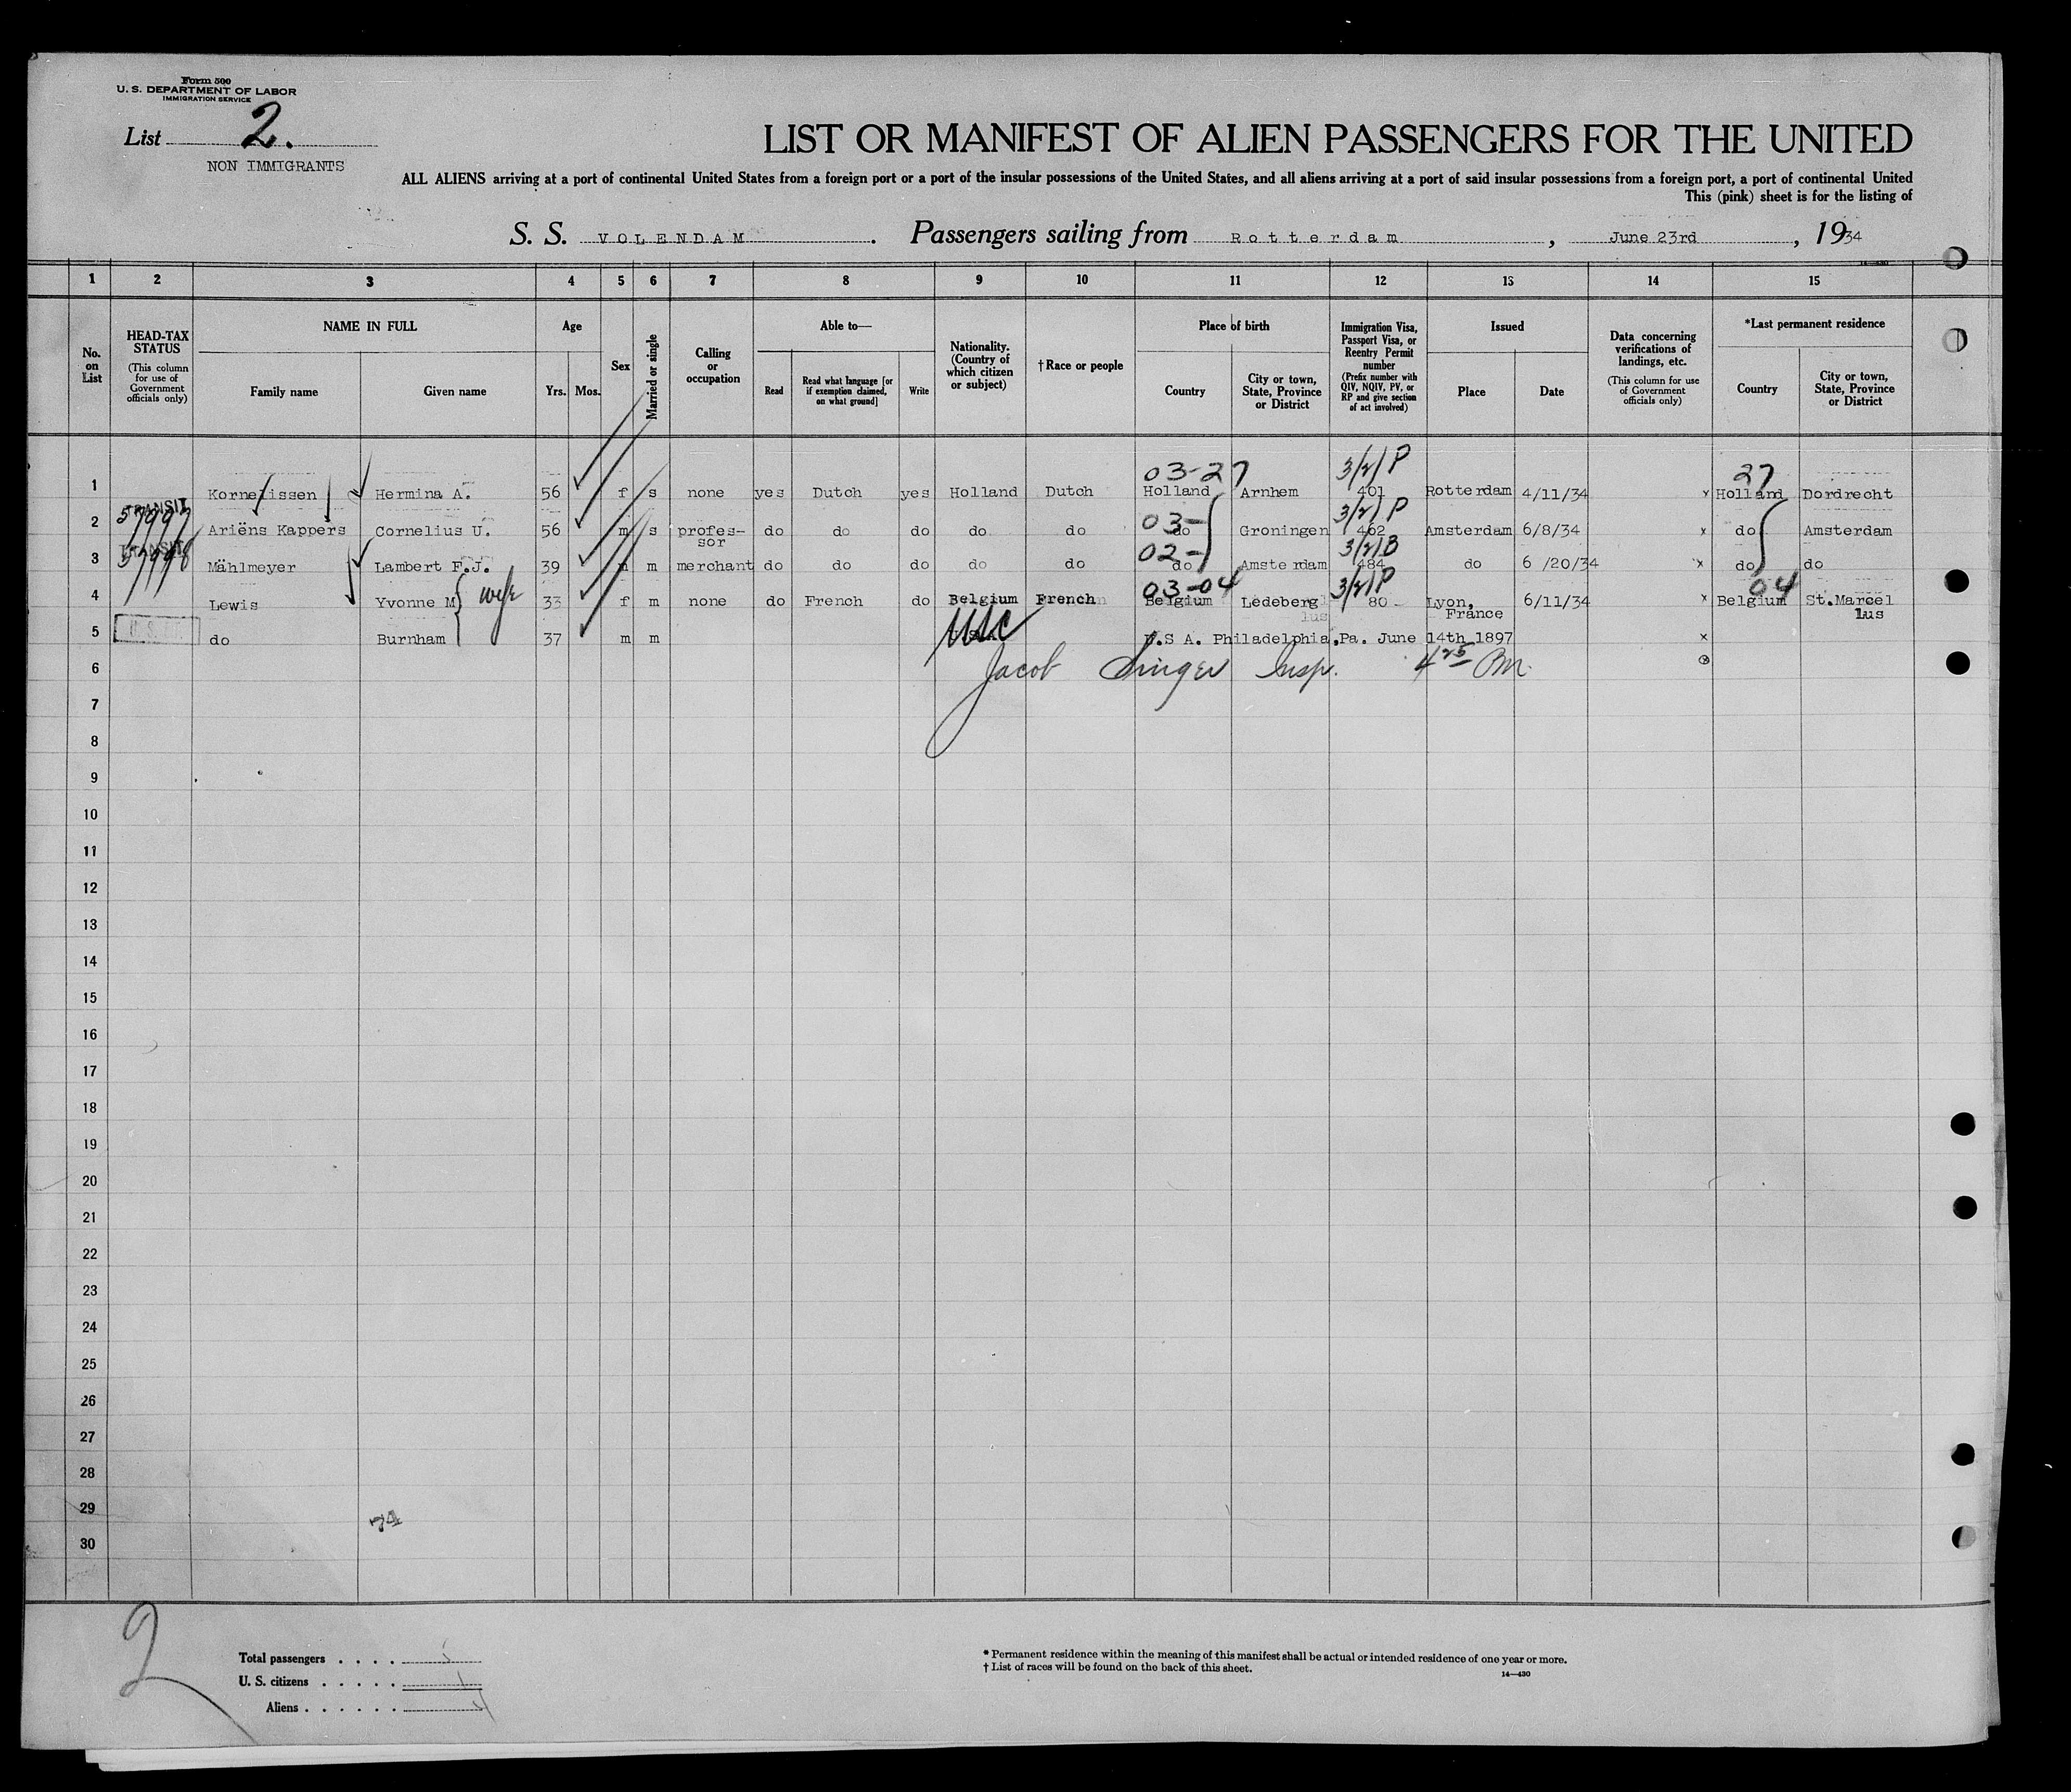 Form 500
U. S. DEPARTMENT OF LABOR
IMMIGRATION SERVICE
List 2.
NON IMMIGRANTS
LIST OR MANIFEST OF ALIEN PASSENGERS FOR THE UNITED
ALL ALIENS arriving at a port of continental United States from a foreign port or a port of the insular possessions of the United States, and all aliens arriving at a port of said insular possessions from a foreign port, a port of continental United
This (pink) sheet is for the listing of
S. S. VOLENDAM. Passengers sailing from Rotterdam, June 23rd, 1934
1 2 3 4 5 6 7 8 9 10 11 12 13 14 15
No. on List
HEAD-TAX STATUS (This column for use of Government officials only)
NAME IN FULL Family name Given name
Age Yrs. Mos.
Sex
Married or single
Calling or occupation
Able to— Read Read what language [or if exemption claimed, on what ground] Write
Nationality. (Country of which citizen or subject)
† Race or people
Place of birth Country City or town, State, Province or District
Immigration Visa, Passport Visa, or Reentry Permit number (Prefix number with QIV, NQIV, PV, or RP and give section of act involved)
Issued Place Date
Data concerning verifications of landings, etc. (This column for use of Government officials only)
*Last permanent residence Country City or town, State, Province or District
03-27 3/2/P 27
1 Kornelissen Hermina A. 56 f s none yes Dutch yes Holland Dutch Holland Arnhem 401 Rotterdam 4/11/34 x Holland Dordrecht
TRANSIT 57997 03- 3/2/P
2 Ariëns Kappers Cornelius U. 56 m s profes-sor do do do do do do Groningen 462 Amsterdam 6/8/34 x do Amsterdam
TRANSIT 57998 02- 3/2/B
3 Mählmeyer Lambert F.J. 39 m m merchant do do do do do do Amsterdam 484 do 6/20/34 x do do
03-04 3/2/P 04
4 Lewis Yvonne M wife 33 f m none do French do Belgium French Belgium Ledeberg 80 Lyon, France 6/11/34 x Belgium St.Marcel lus
5 do Burnham 37 m m USC U.S A. Philadelphia,Pa. June 14th 1897 x
6 Jacob Singer Insp. 4 25 Pm.
7
8
9
10
11
12
13
14
15
16
17
18
19
20
21
22
23
24
25
26
27
28
29
30
74
2
Total passengers . . . . 5
U. S. citizens . . . . . 1
Aliens . . . . . . 4
* Permanent residence within the meaning of this manifest shall be actual or intended residence of one year or more.
† List of races will be found on the back of this sheet.
14—430